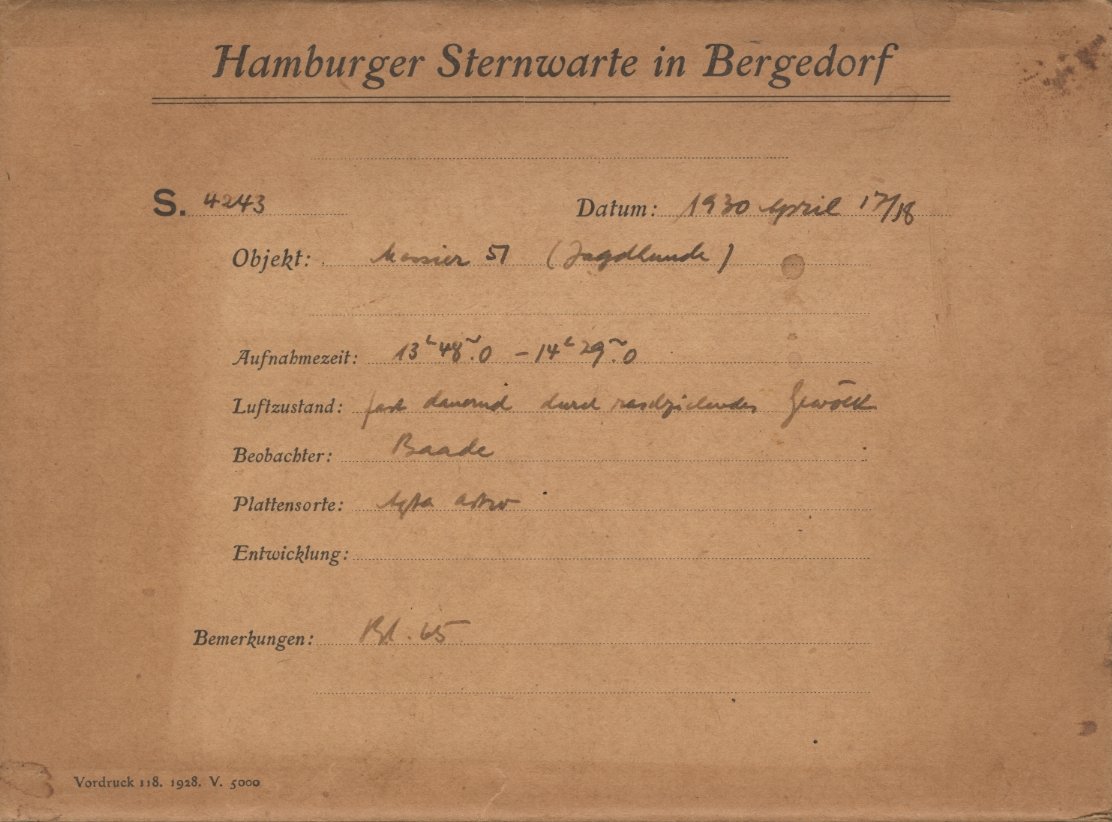 Hamburger Sternwarte in Bergedorf
S. 4243 Datum: 1930 April 17/18
Objekt: Messier 51 (Jagdhunde)
Aufnahmezeit: 13ʰ48ᵐ.0 – 14ʰ29ᵐ.0
Luftzustand: fast dauernd durch raschziehendes Gewölk
Beobachter: Baade
Plattensorte: Agfa astro
Entwicklung:
Bemerkungen: Bl. 65
Vordruck 118. 1928. V. 5000